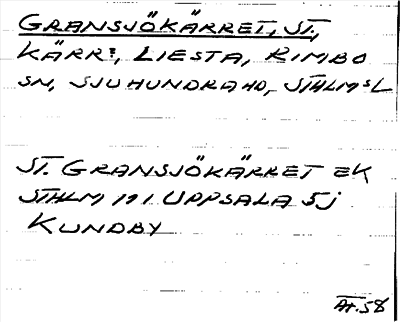 GRANSJÖKÄRRET, ST.,
KÄRR:, LIESTA, RIMBO
SN, SJUHUNDRA HD, STHLMS L
ST. GRANSJÖKÄRRET EK
STHLM 191 UPPSALA 5J
KUNDBY
ÅT. 58